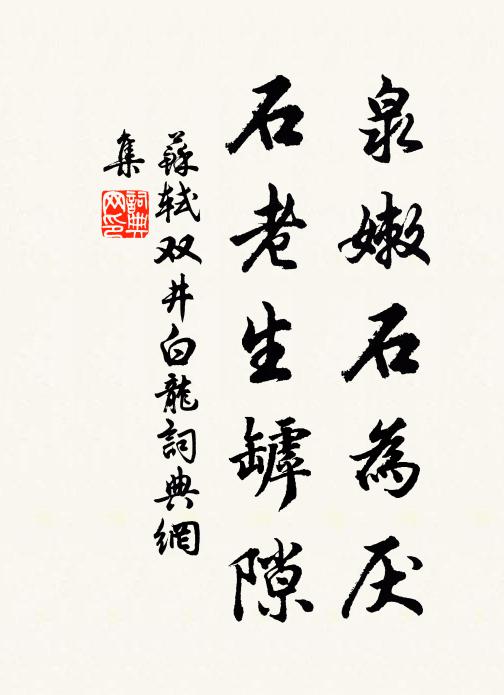 泉嫩石為厌
石老生罅隙
蘇轼双井白龍詞典網
集
詞典
网印